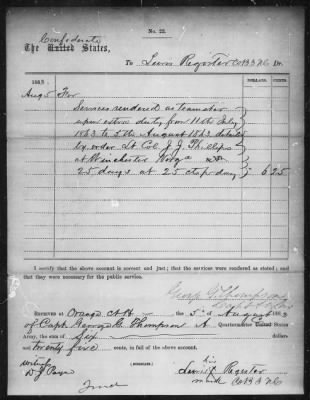 No. 22.
Confederate
The United States,
To Lewis Register Co B 3 NC Dr.
1863
DOLLARS. CENTS.
Aug 5 For
Services rendered as teamster
extra duty from 11th July
1863 to 5th August 1863 detailed
by order Lt Col J. J. Phillips
at Winchester
25 days at 25 cts per day 6 25
I certify that the above account is correct and just; that the services were rendered as stated; and that they were necessary for the public service.
George G. Thompson
RECEIVED at Orange C.H. the 5th of August 1863
of Capt George G. Thompson A Quartermaster United States
Army, the sum of Six dollars
and twenty five cents, in full of the above account.
(DUPLICATE.)
witness
his
Lewis X Register
mark Co B 3 NC